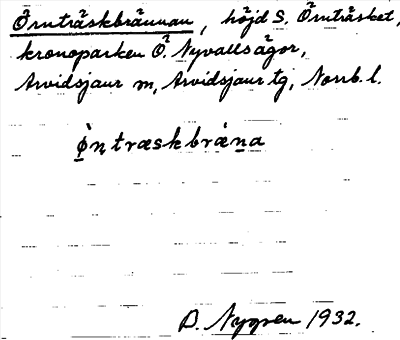 Örnträskbrännan, höjd S. Örnträsket,
kronoparken Ö. Nyvallsågor,
Arvidsjaur m, Arvidsjaur tg, Norrb. l.
ø̀ɳtræskbrǽna
D. Nygren 1932.